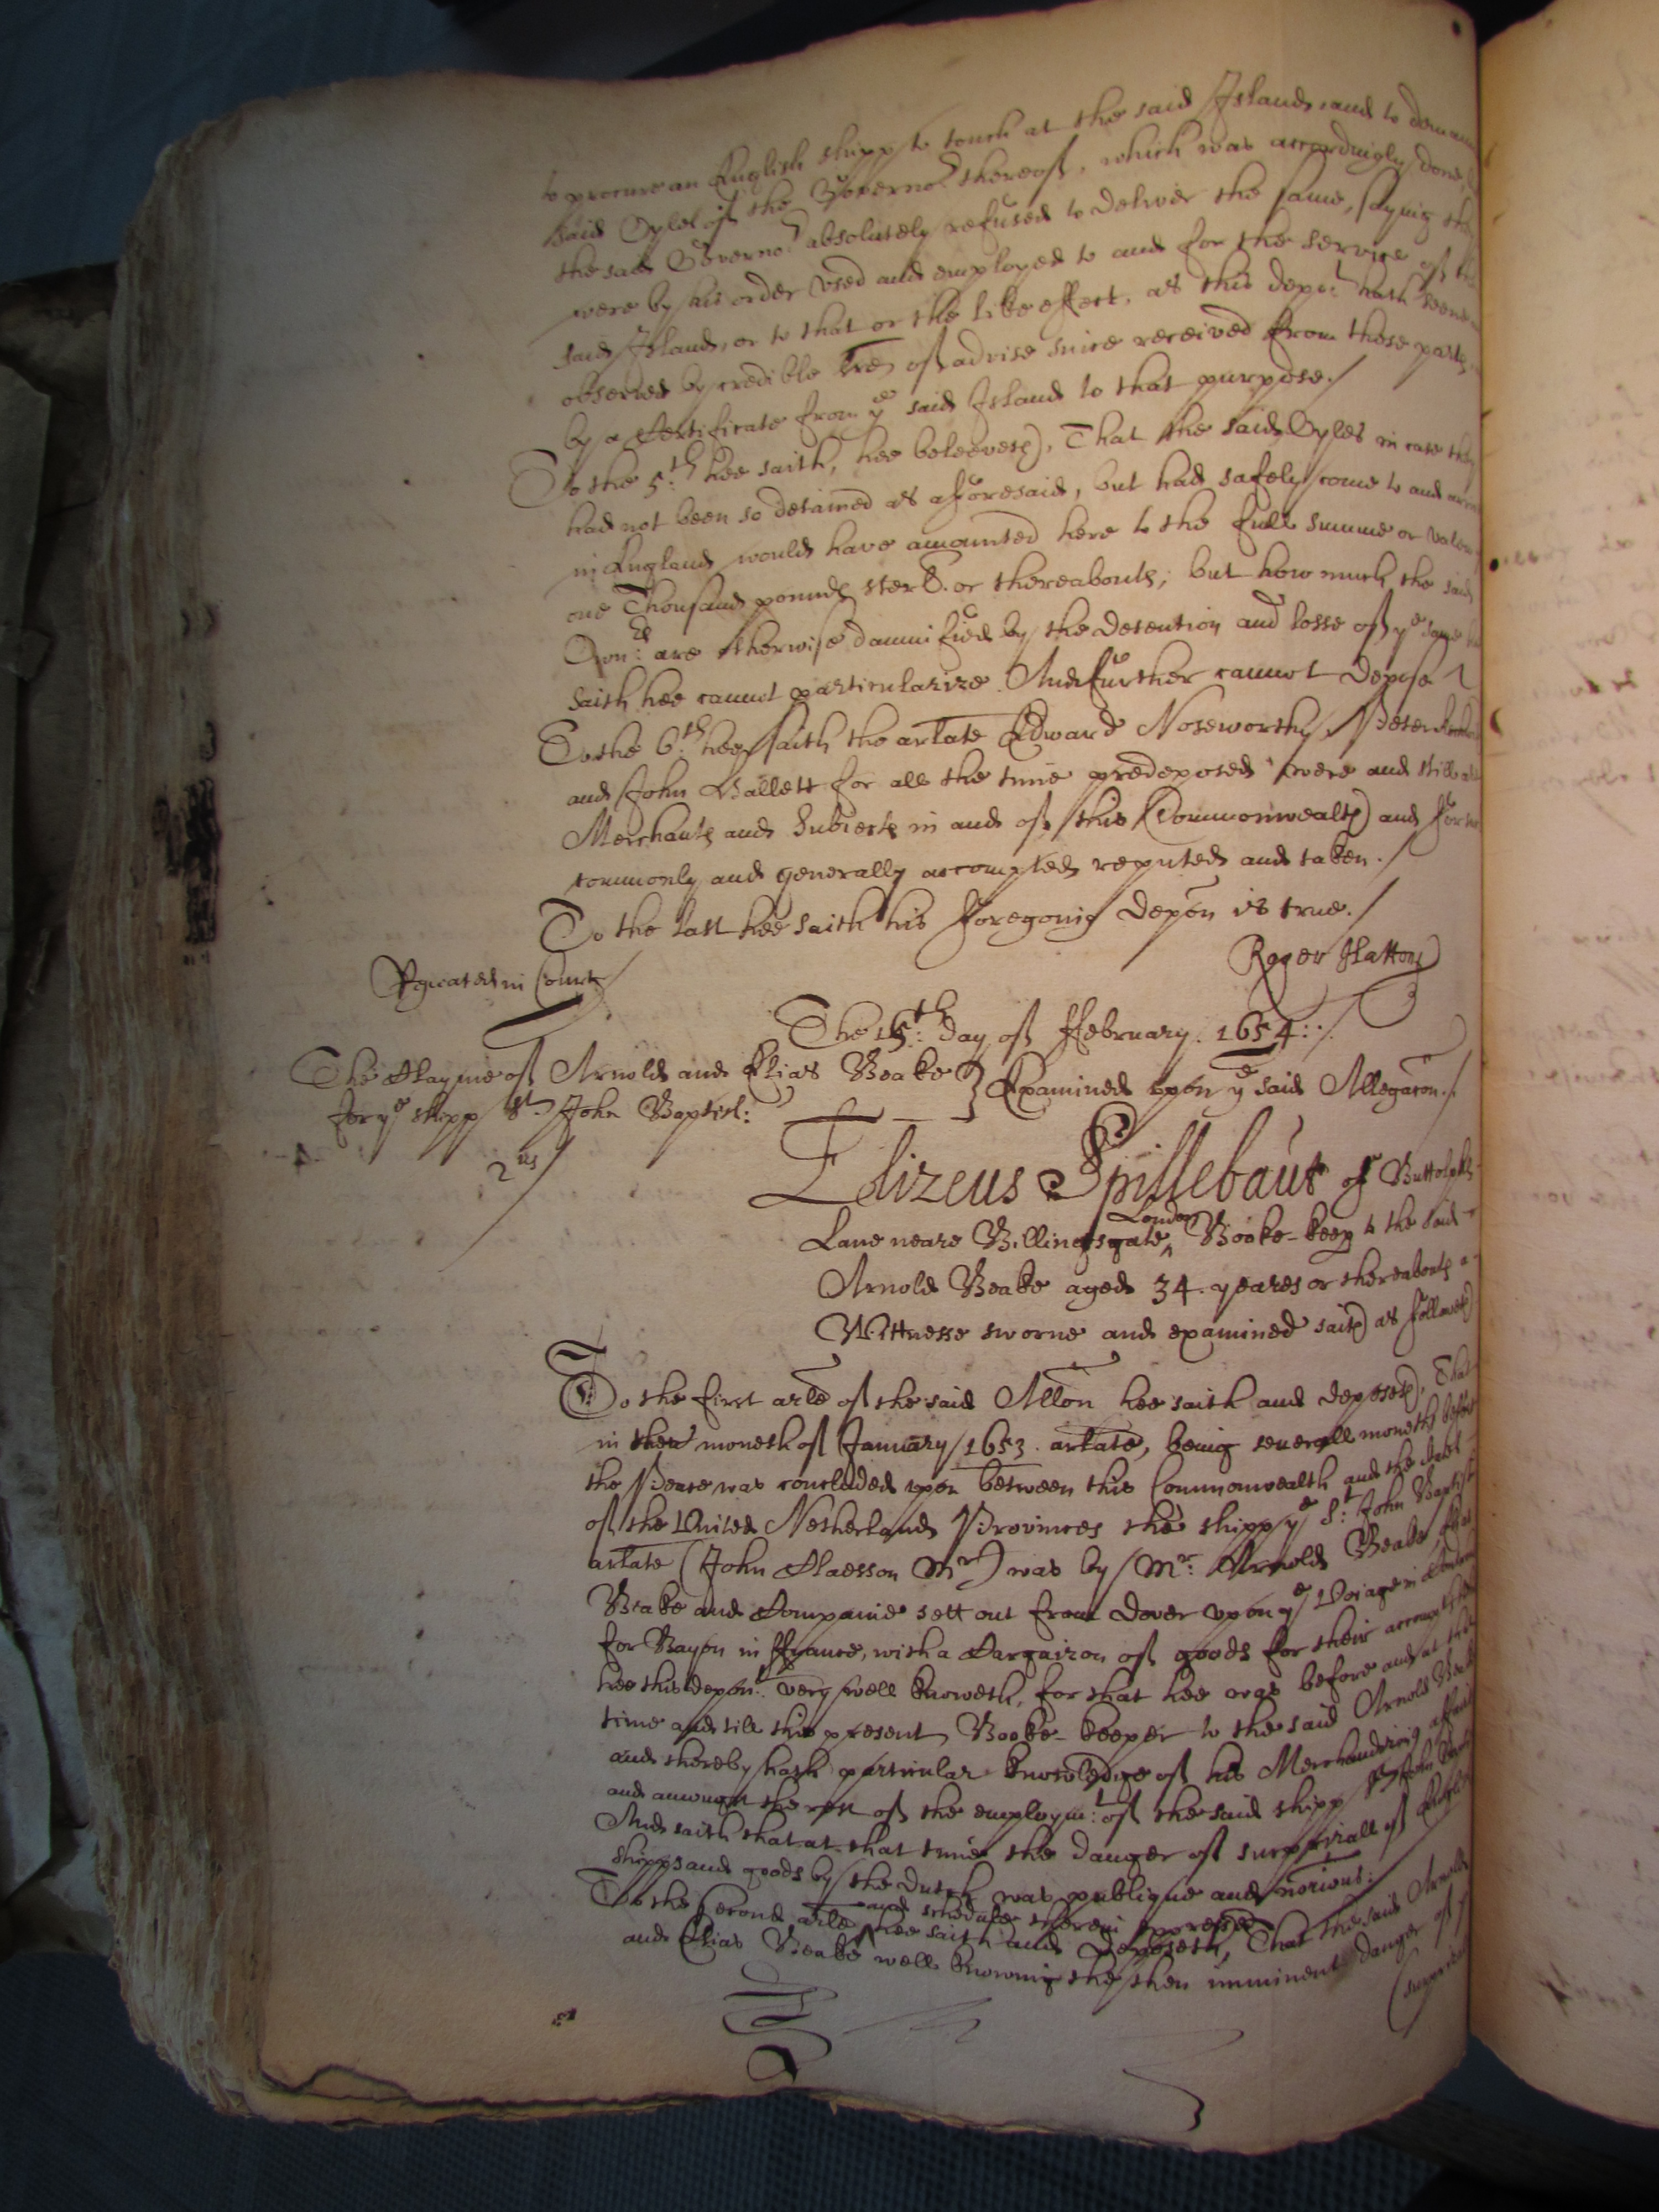 to procure an English shipp to touch at the said Island, and to demand
said Oyles of the Governor thereof, which was accordingly done,
the said Governor absolutely refused to deliver the same, saying they
were by his order used and employed to and for the service of the
said Island, or to that or the like effect, as this depot hath seene
observed by credible lres of advise since received from those parts,
by a Certificate from ye said Island to that purpose./
To the 5:th hee saith, hee beleeveth, That the said Oyles in case they
had not been so detained as aforesaid, but had safely come to and
in England would have amounted here to the full summe or valew
one Thousand pounds sterl. or thereabouts; but how much the said
are otherwise damnified by the detention and losse of ye same hee
saith hee cannot particularize. And further cannot depose
To the 6:th hee saith the arlate Edward Noseworthy, Peter
and John Ballett for all the time predeposed were and still are
Merchants and Subiects in and of this Commonwealth and for
commonly and generally accompted, reputed and taken./
To the last hee saith his foregoing depon is true./
Roger Hatton
Repeated in Court
The 15:th day of ffebruary. 1654:./.
The Clayme of Arnold and Elias Beake } Examined upon ye said Allegacon./.
for ye shipp St John Baptist:
2us
Elizeus Spillebaut of Buttolphs
Lane neare Billingsgate London, Booke-keep to the said
Arnold Beake aged 34. yeares or thereabouts a
Wittnesse sworne and examined saith as followeth
To the first arle of the said Allon hee saith and deposeth, That
in the moneth of January 1653. arlate, being severall moneths before
the Peace was concluded upon between this Commonwealth and the States
of the United Netherlands Provinces the shipp ye St: John Baptist
arlate (John Claesson Mr) was by Mr: Arnold Beake, Elias
Beake and Companie sett out from Dover upon ye Voiage in
for Bayon in ffrance, with a Cargaizon of goods for their accompt
hee this depont: very well knoweth, for that hee was before and at that
time and till this present Booke-keeper to the said Arnold Beake
and thereby hath particular knowledge of his Merchandizing affaires
and amongst the rest of the employmt: of the said shipp St John Baptist
And saith that at that time the danger of surprizall of English
shipps and goods by the Dutch was publique and notorious:
To the second arle and schedule therein expressed hee saith and deposeth, That the said Arnold
and Elias Beake well knowing the then imminent danger of
(surprizall